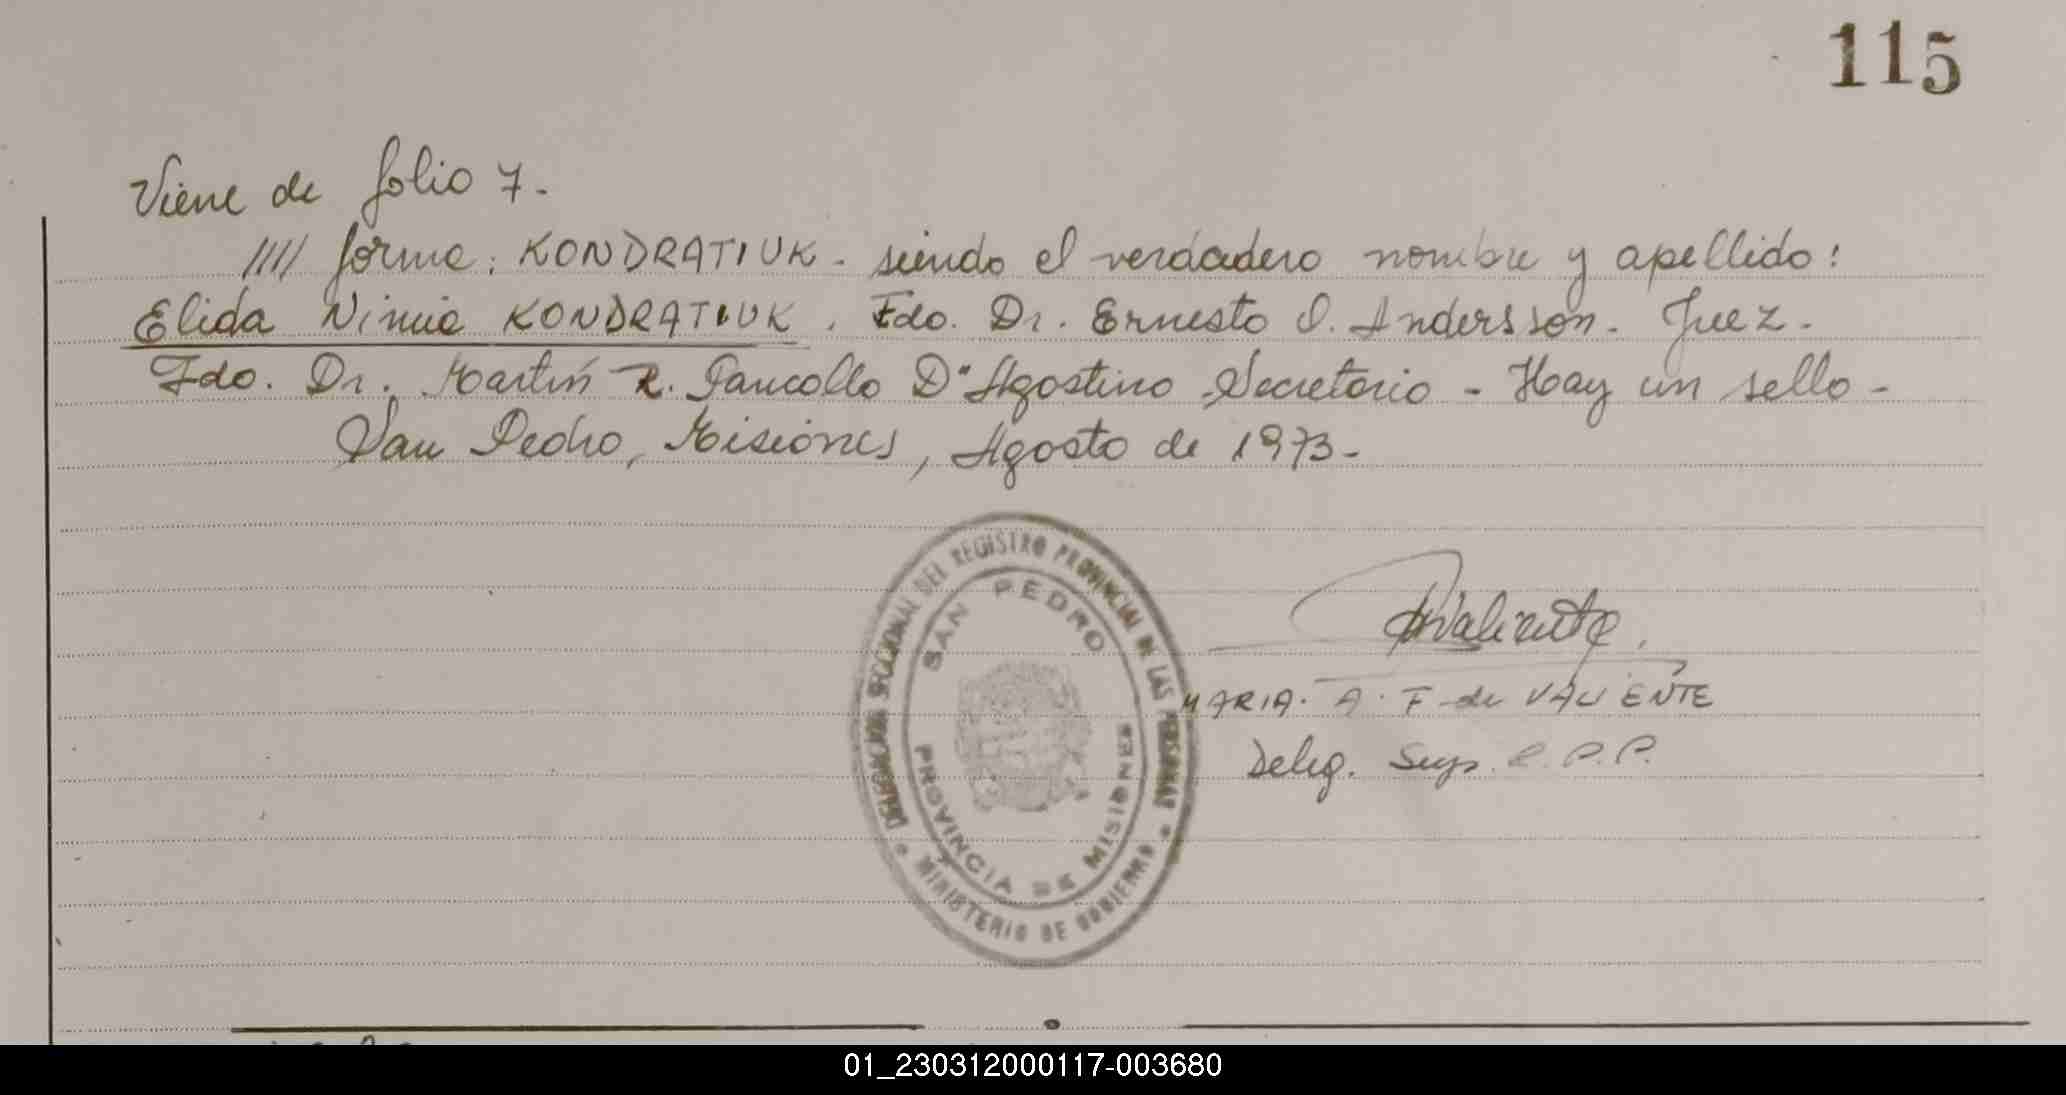 115
Viene de folio 7.
//// forma: KONDRATIUK - siendo el verdadero nombre y apellido:
Elida Nimia KONDRATIUK. Fdo. Dr. Ernesto O. Andersson. Juez.
Fdo. Dr. Martín R. D'Agostino Secretario - Hay un sello -
San Pedro, Misiones, Agosto de 1973 -
DELEGACION SECCIONAL DEL REGISTRO PROVINCIAL DE LAS PERSONAS
SAN PEDRO
PROVINCIA DE MISIONES
MINISTERIO DE GOBIERNO
Valiente
MARIA. A. F de VALIENTE
Deleg. Sup. R. P. P.
01_230312000117-003680